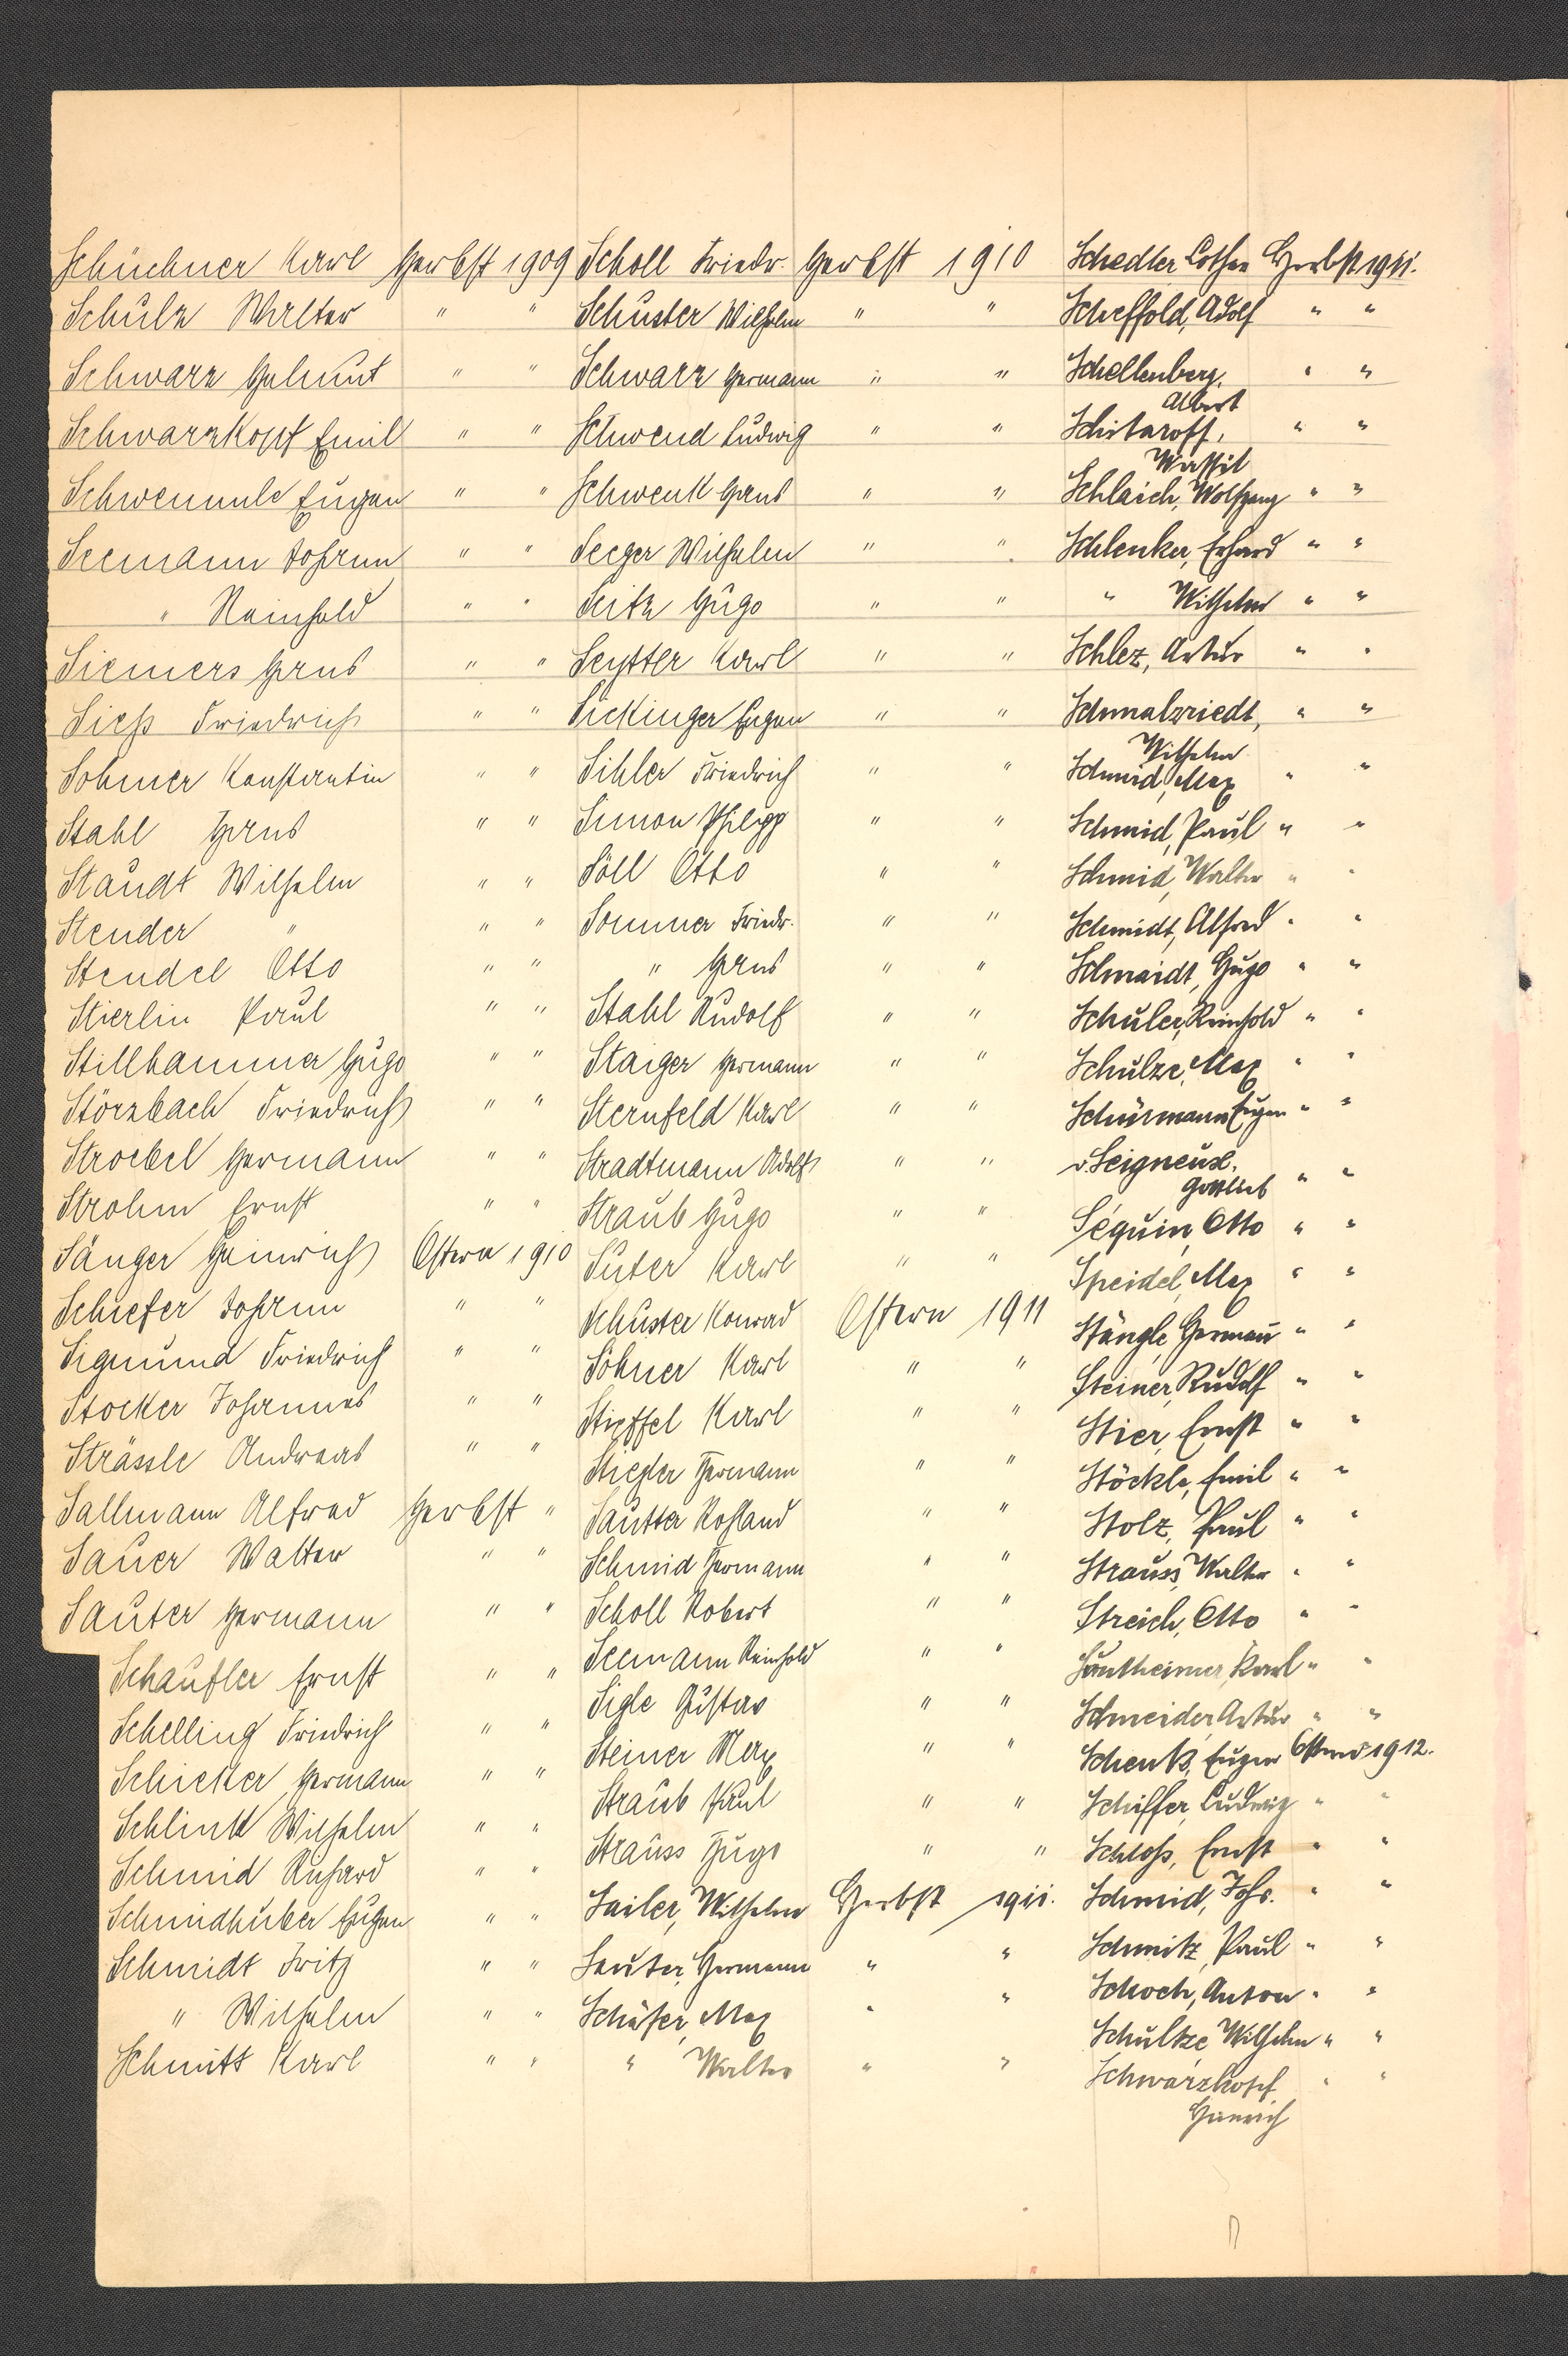 Schüchner Karl Herbst 1909
Schulz Walter " "
Schwarz Helmut " "
Schwarzkopf Emil " "
Schwemmle Eugen " "
Seemann Johann " "
" Reinhold " "
Siemers Hans " "
Siess Friedrich " "
Sohmer Konstantin " "
Stahl Hans " "
Staudt Wilhelm " "
Stender " " "
Stendel Otto " "
Stierlin Paul " "
Stillhammer Hugo " "
Störzbach Friedrich " "
Stroebel Hermann " "
Strohm Ernst " "
Sänger Heinrich Ostern 1910
Schiefer Johann " "
Sigmund Friedrich " "
Stocker Johannes " "
Strässle Andreas " "
Sallmann Alfred Herbst "
Sauer Walter " "
Sauter Hermann " "
Schaufler Ernst " "
Schelling Friedrich " "
Schicker Hermann " "
Schlink Wilhelm " "
Schmid Richard " "
Schmidhuber Eugen " "
Schmidt Fritz " "
" Wilhelm " "
Schmitt Karl " "
Scholl Friedr. Herbst 1910
Schuster Wilhelm " "
Schwarz Hermann " "
Schwend Ludwig " "
Schwenk Hans " "
Seeger Wilhelm " "
Seitz Hugo " "
Seytter Karl " "
Sickinger Eugen " "
Sihler Friedrich " "
Simon Philipp " "
Söll Otto " "
Sommer Friedr. " "
" Hans " "
Stahl Rudolf " "
Staiger Hermann " "
Sternfeld Karl " "
Stradtmann Adolf " "
Straub Hugo " "
Suter Karl " "
Schuster Konrad Ostern 1911
Söhner Karl " "
Stieffel Karl " "
Stiegler Hermann " "
Sautter Roland " "
Schmid Hermann " "
Scholl Robert " "
Seemann Reinhold " "
Sigle Gustav " "
Steiner Max " "
Straub Paul " "
Strauss Hugo " "
Sailer, Wilhelm Herbst 1911.
Sauter, Hermann " "
Schäfer, Max " "
" Walter " "
Schedler, Lothar Herbst 1911.
Scheffold, Adolf " "
Schellenberg, " "
Albert
Schitaroff, " "
Wassil
Schlaich, Wolfgang " "
Schlenker, Erhard " "
" Wilhelm " "
Schlez, Artur " "
Schmalzriedt, " "
Wilhelm
Schmid, Max " "
Schmid, Paul " "
Schmid, Walter " "
Schmidt, Alfred " "
Schmidt, Hugo " "
Schuler, Reinhold " "
Schulze, Max " "
Schürmann Eugen " "
v. Seigneux,
Gottlieb " "
Séquin, Otto " "
Speidel, Max " "
Stängle, Hermann " "
Steiner, Rudolf " "
Stier, Ernst " "
Stöckle, Emil " "
Stolz, Paul " "
Strauss, Walter " "
Streich, Otto " "
Karl " "
Schneider, Artur " "
Schenk, Eugen Ostern 1912.
Schiffer, Ludwig " "
Schloss, Ernst " "
Schmid, Johs. " "
Schmitz, Paul " "
Schoch, Anton " "
Schultze, Wilhelm " "
Schwarzkopf, " "
Heinrich